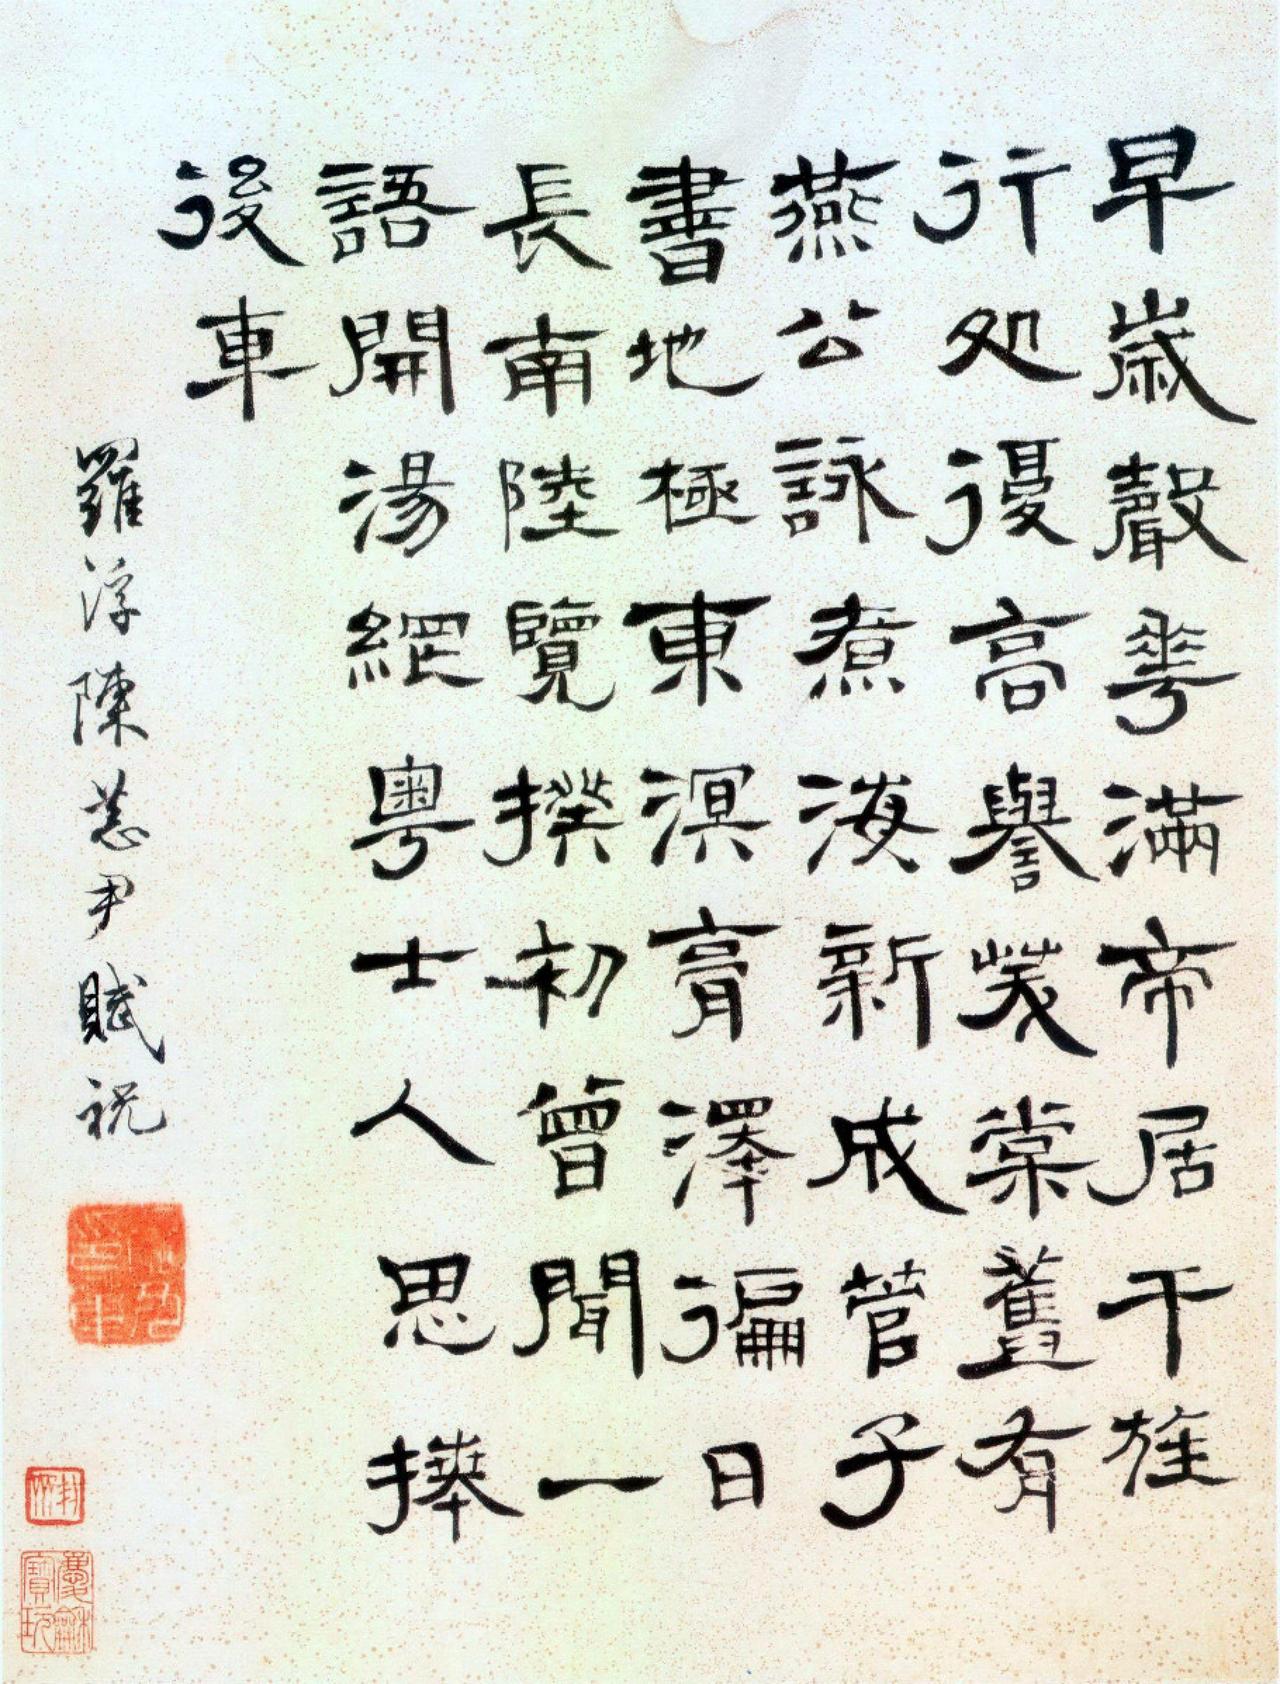 早歲聲華滿帝居干旄
行処復高譽茇棠舊有
燕公詠煮海新成管子
書地極東溟膏澤徧日
長南陸覽揆初曾聞一
語開湯網粵士人思捧
後車
羅浮陳恭尹賦祝